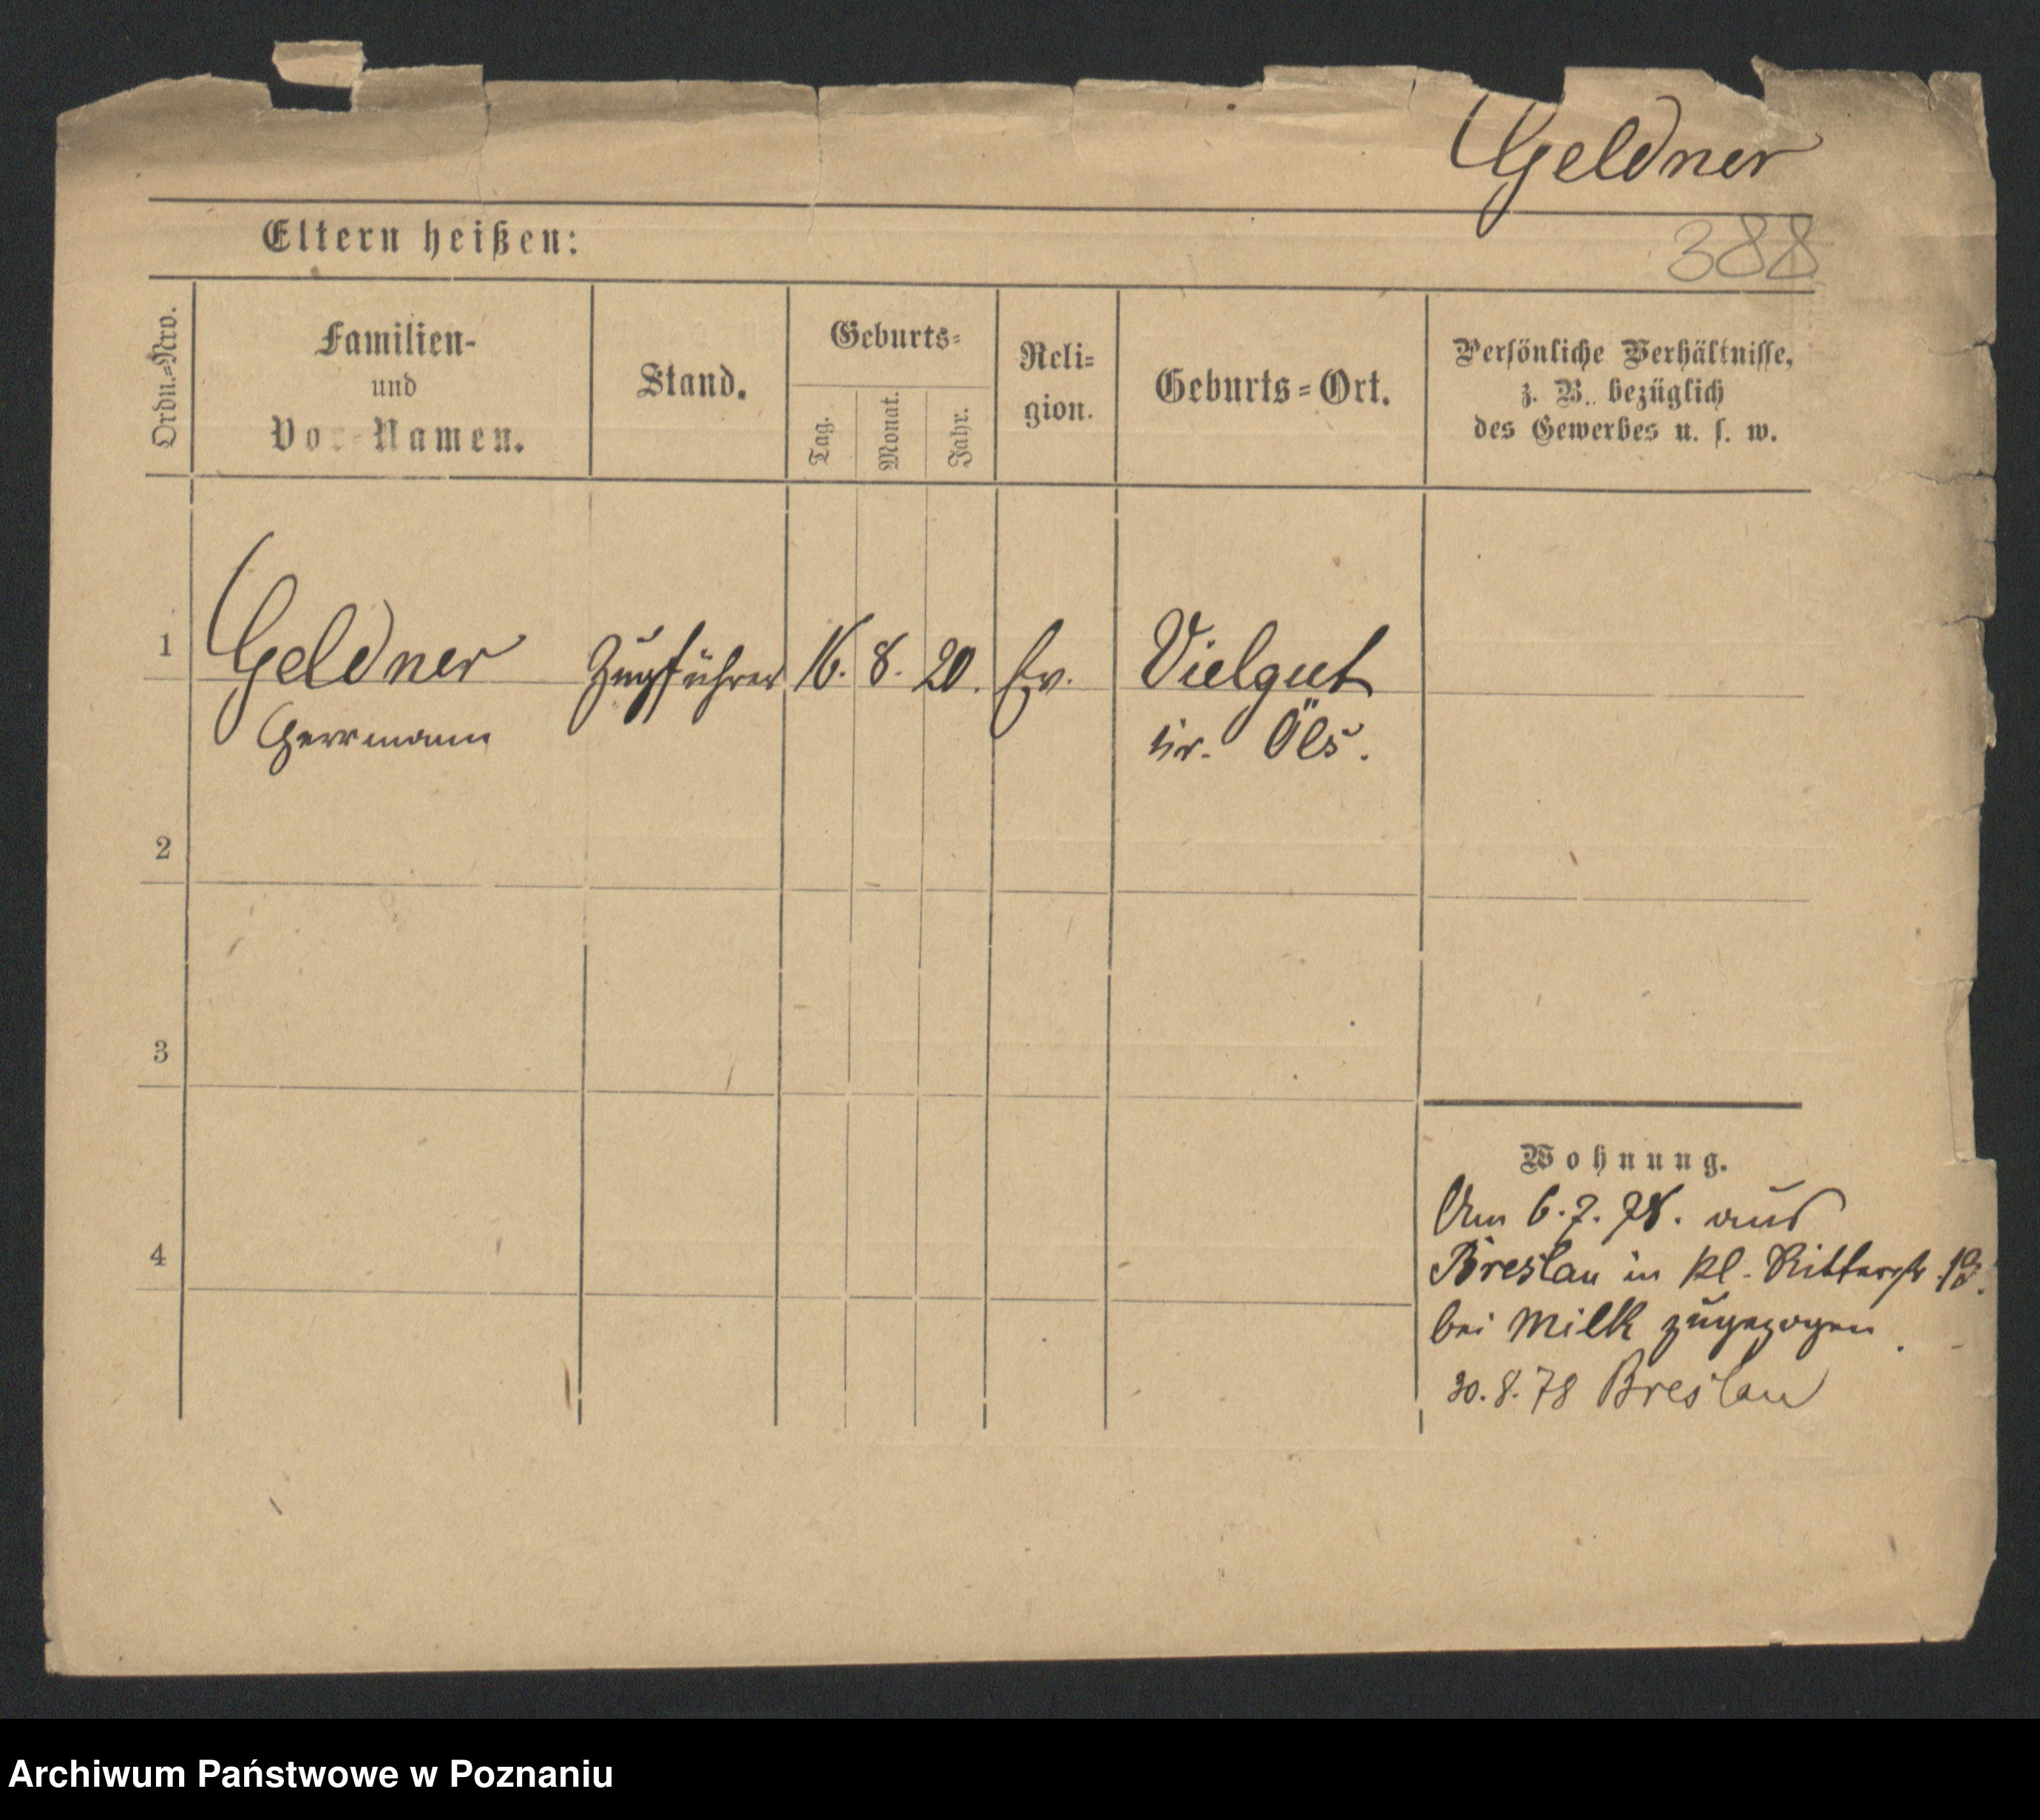 Geldner
388
Eltern heißen:
Ordn.-Nro.
Familien-
und
Vor-Namen.
Stand.
Geburts-
Tag.
Monat.
Jahr.
Reli-
gion.
Geburts-Ort.
Persönliche Verhältnisse,
z. B. bezüglich
des Gewerbes u. s. w.
1
Geldner
Herrmann
Zugführer
16. 8. 20.
Ev.
Vielgut
Kr. Öls.
2
3
4
Wohnung.
Am 6. 7. 78. aus
Breslau in Kl. Ritterstr.
bei Milk zugezogen.
30. 8. 78 Breslau
Archiwum Państwowe w Poznaniu